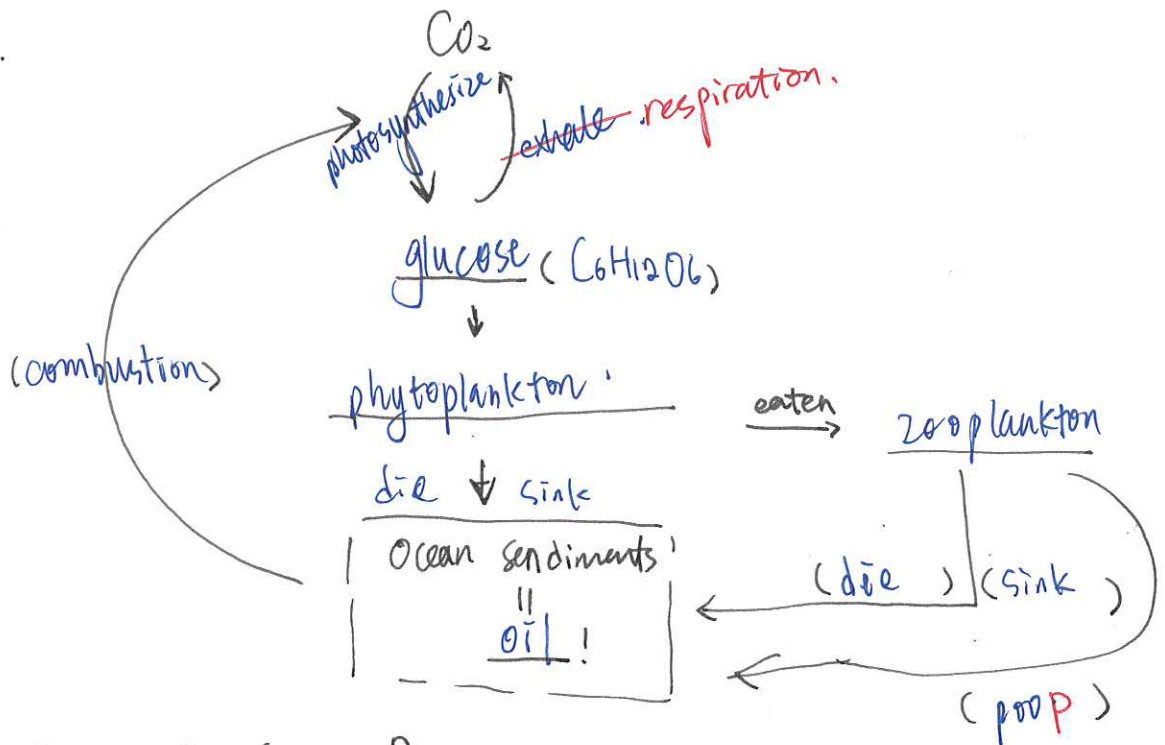 CO₂
photosynthesize
exhale respiration.
glucose (C6H12O6)
(combustion)
phytoplankton
eaten
zooplankton
die sink
Ocean sendiments
(die) (sink)
oil!
(poop)